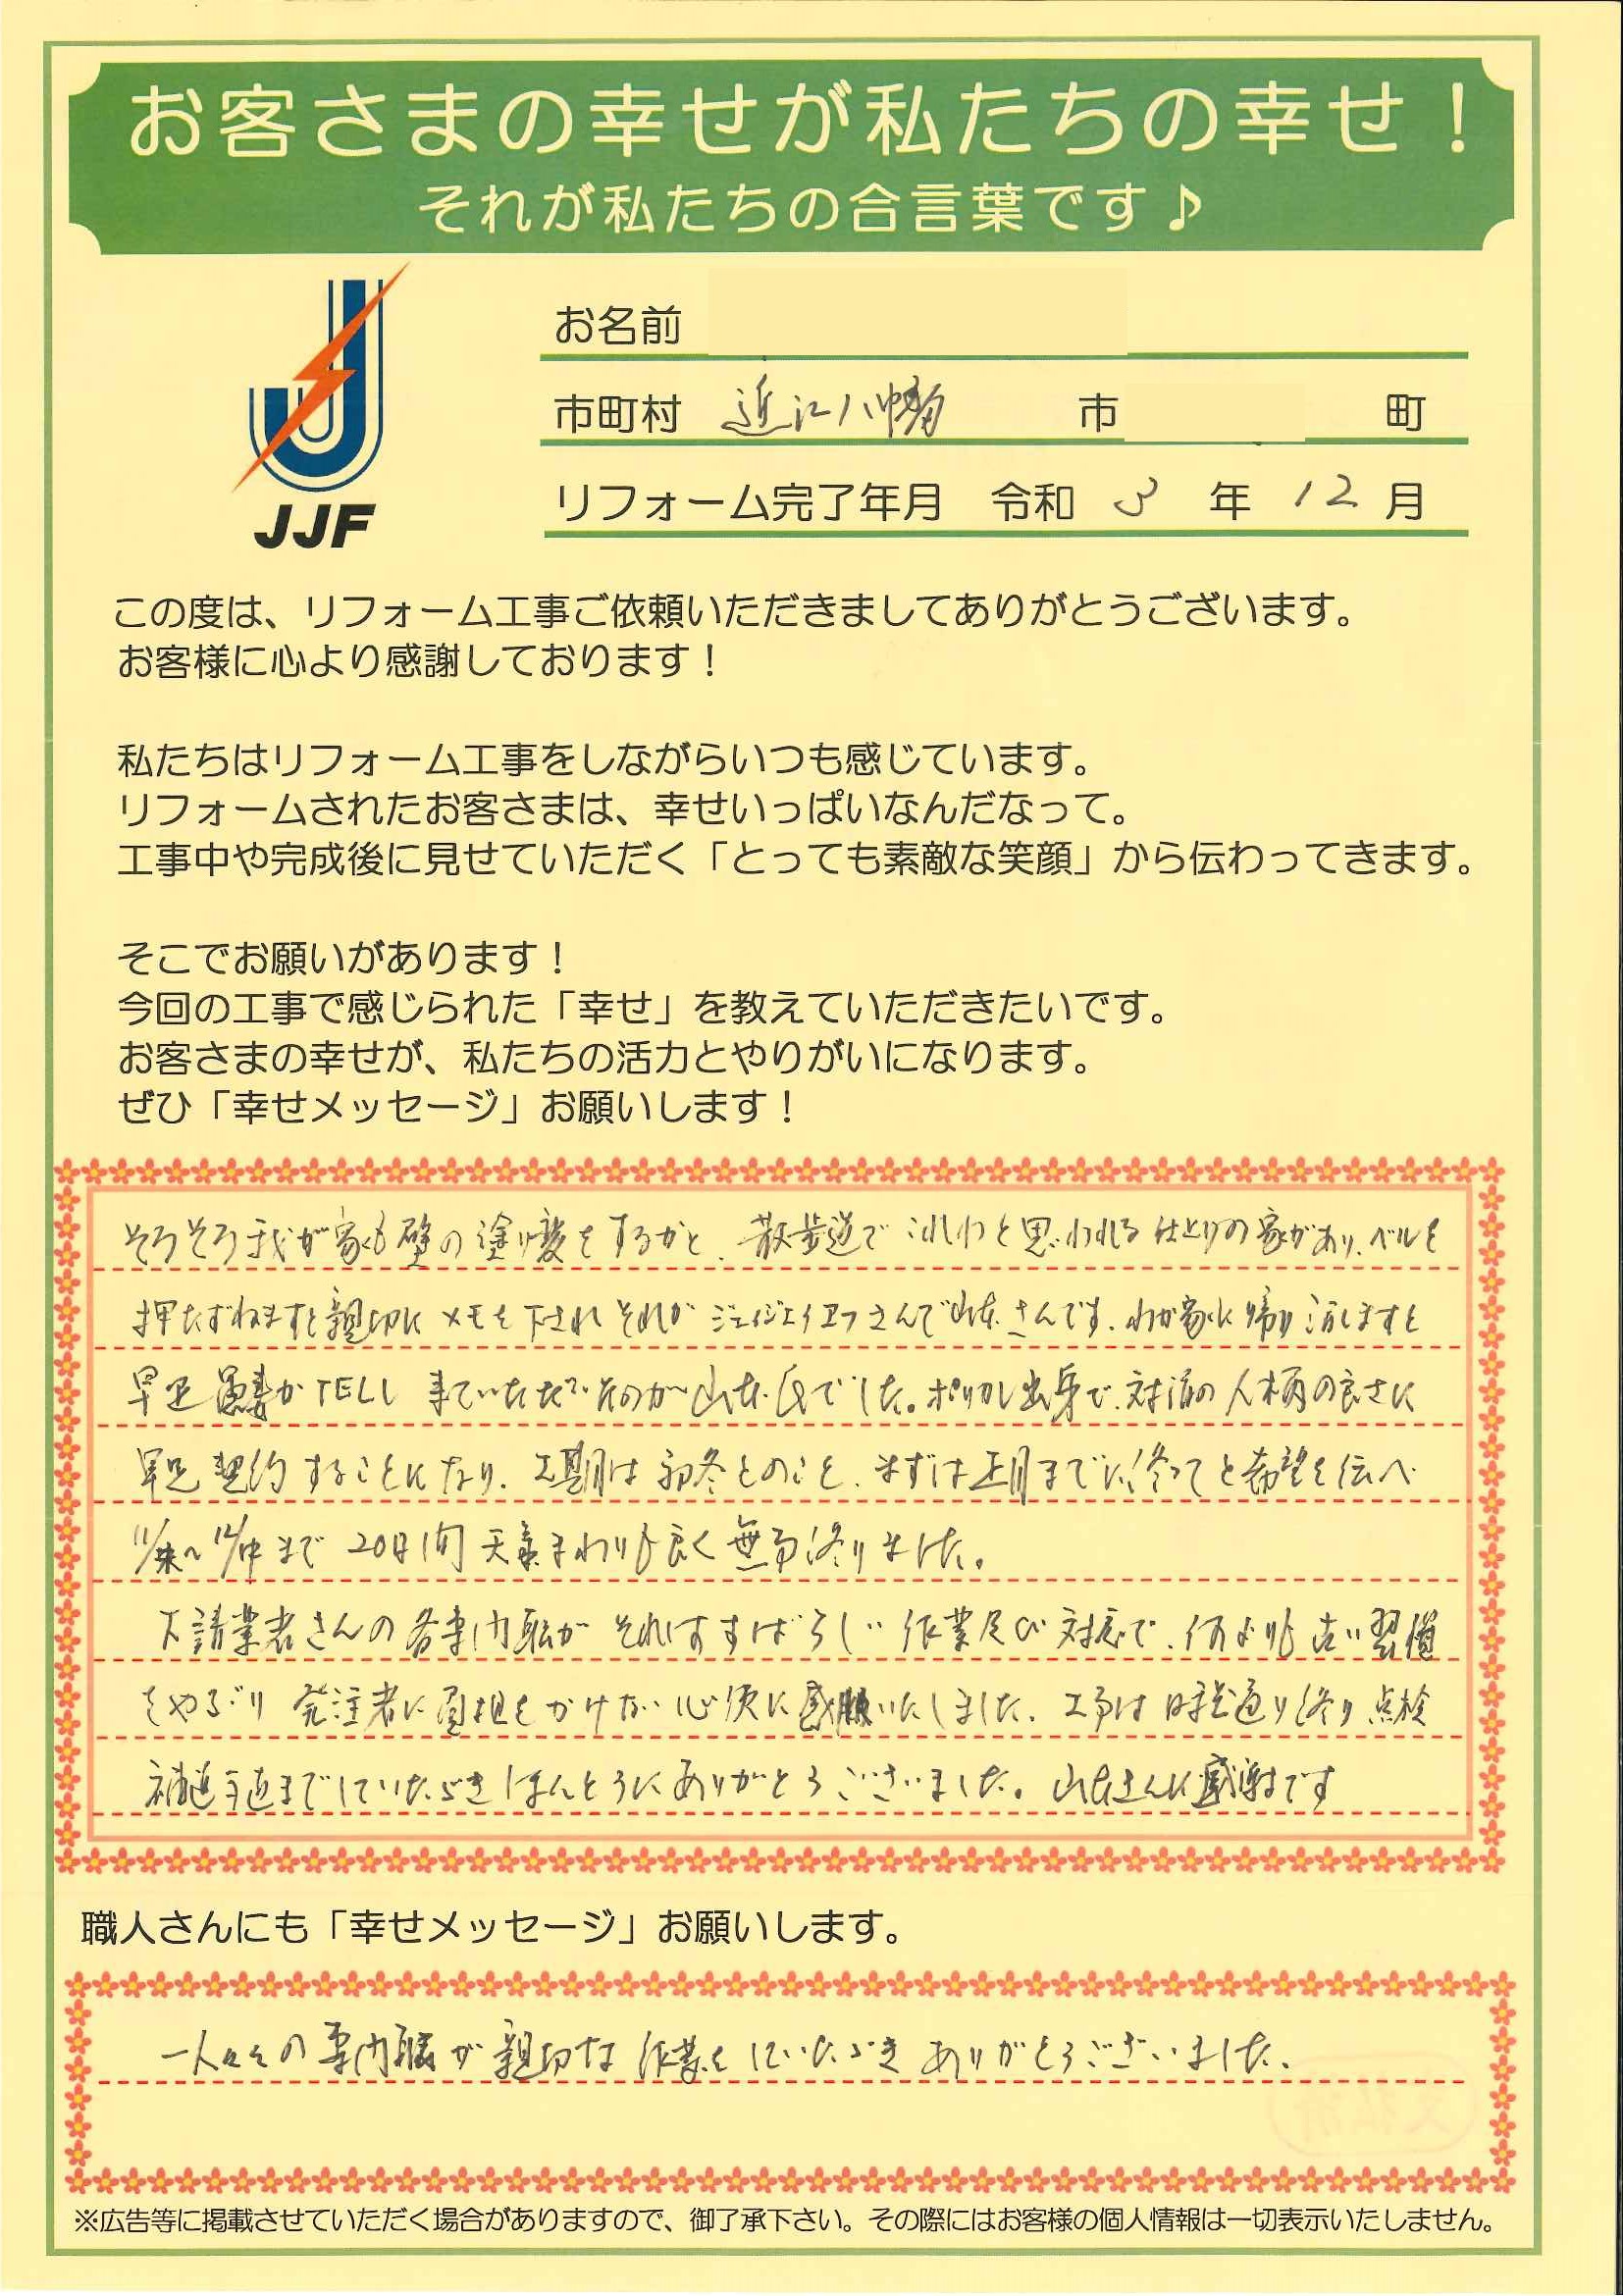 お客さまの幸せが私たちの幸せ！
それが私たちの合言葉です♪
JJF
お名前
市町村 近江八幡 市 町
リフォーム完了年月 令和 3 年 12 月
この度は、リフォーム工事ご依頼いただきましてありがとうございます。
お客様に心より感謝しております！
私たちはリフォーム工事をしながらいつも感じています。
リフォームされたお客さまは、幸せいっぱいなんだなって。
工事中や完成後に見せていただく「とっても素敵な笑顔」から伝わってきます。
そこでお願いがあります！
今回の工事で感じられた「幸せ」を教えていただきたいです。
お客さまの幸せが、私たちの活力とやりがいになります。
ぜひ「幸せメッセージ」お願いします！
そろそろ我が家も壁の塗り変をするかと、散歩道でこれわと思われる仕上りの家があり、ベルを
押したずねますと親切にメモを下されそれがジェイジェイエフさんで山本さんです。わが家に帰り話しますと
早足愚妻がTELし来ていただいたのが山本氏でした。ポリカレ出身で、対話の人柄の良さに
早足契約することになり、工期は初冬とのこと、まずは正月までに終ってと希望を伝へ
11/末〜12/中まで 20日間 天気まわりも良く無事終りました。
下請業者さんの各専門職がそれはすばらしい作業及び対応で、何よりも古い習慣
をやぶり 発注者に負担をかけない心使に感服いたしました。工事は日程通り終り点検
補修手直までしていただきほんとうにありがとうございました。山本さんに感謝です
職人さんにも「幸せメッセージ」お願いします。
一人々々の専門職が親切な作業をしていただき ありがとうございました。
※広告等に掲載させていただく場合がありますので、御了承下さい。その際にはお客様の個人情報は一切表示いたしません。